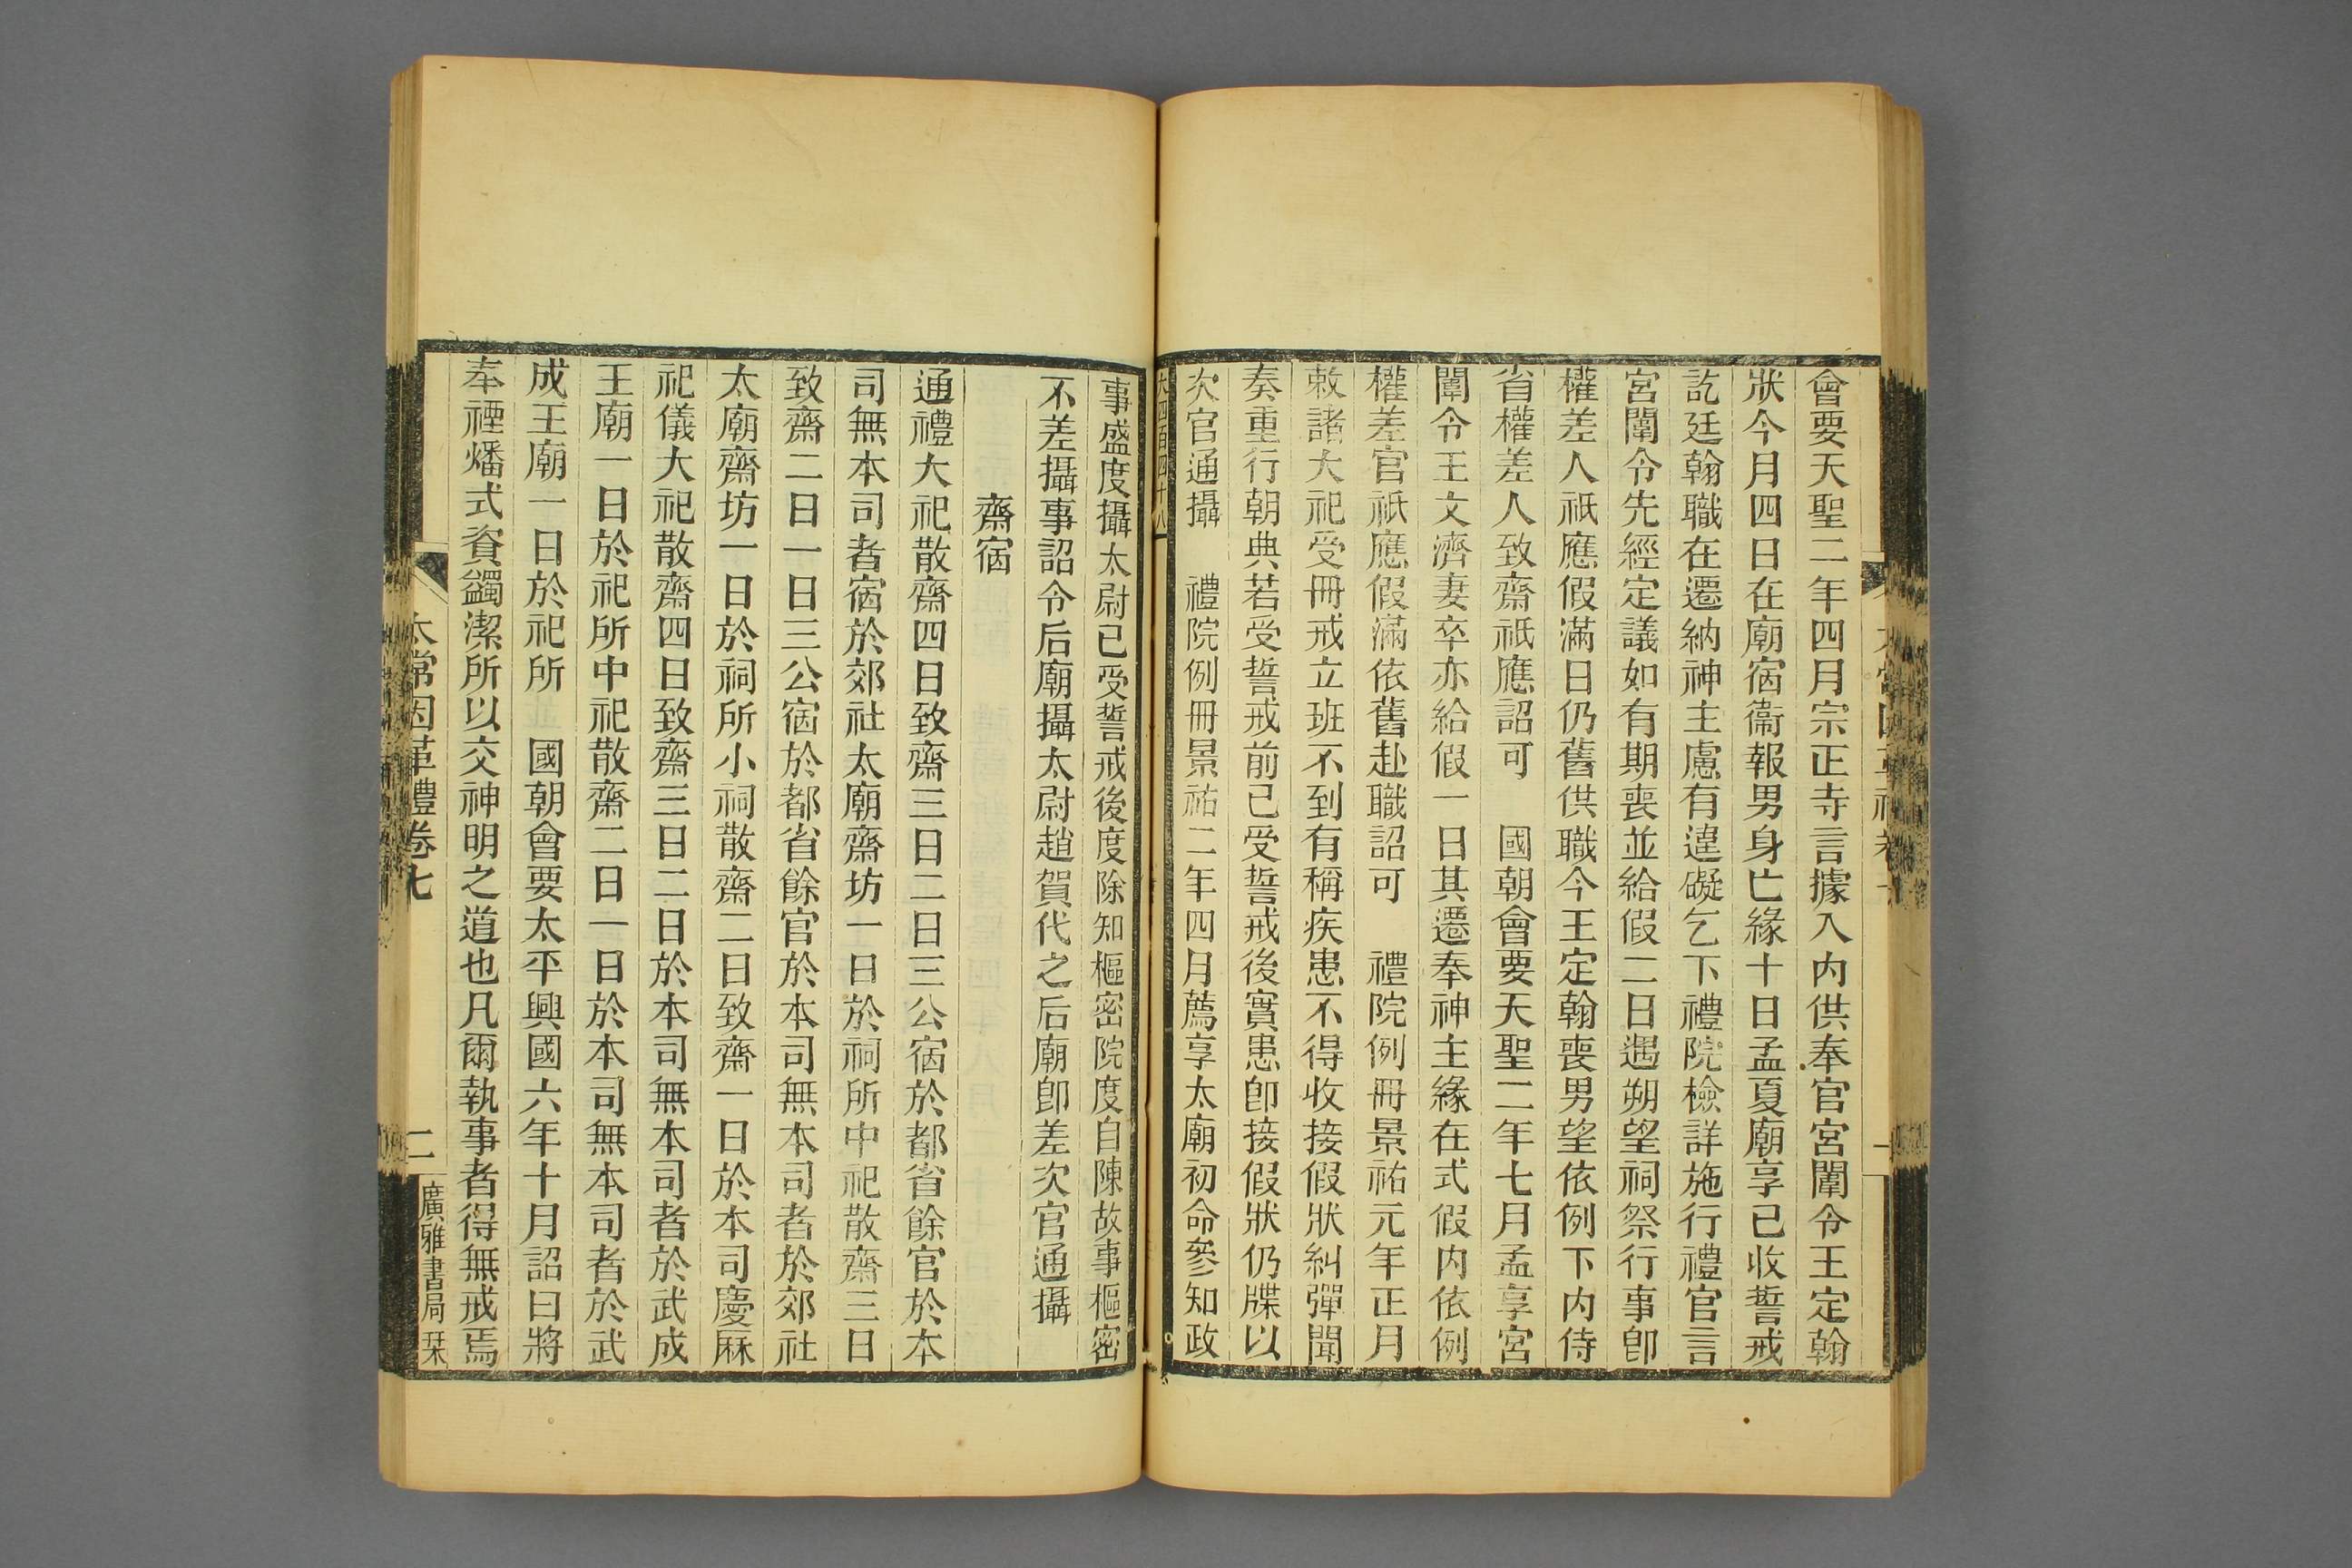 會要天聖二年四月宗正寺言據入內供奉官宮闈令王定翰
狀今月四日在廟宿衞報男身亡緣十日孟夏廟享已收誓戒
訖廷翰職在遷納神主慮有違礙乞下禮院檢詳施行禮官言
宮闈令先經定議如有期喪並給假二日遇朔望祠祭行事卽
權差人祇應假滿日仍舊供職今王定翰喪男望依例下內侍
省權差人致齋祇應詔可　國朝會要天聖二年七月孟享宮
闈令王文濟妻卒亦給假一日其遷奉神主緣在式假內依例
權差官祇應假滿依舊赴職詔可　禮院例冊景祐元年正月
敕諸大祀受冊戒立班不到有稱疾患不得收接假狀糾彈聞
奏重行朝典若受誓戒前已受誓戒後實患卽接假狀仍牒以
次官通攝　禮院例冊景祐二年四月薦享太廟初命參知政
大四百四十八
事盛度攝太尉已受誓戒後度除知樞密院度自陳故事樞密
不差攝事詔令后廟攝太尉趙賀代之后廟卽差次官通攝
齋宿
通禮大祀散齋四日致齋三日二日三公宿於都省餘官於本
司無本司者宿於郊社太廟齋坊一日於祠所中祀散齋三日
致齋二日一日三公宿於都省餘官於本司無本司者於郊社
太廟齋坊一日於祠所小祠散齋二日致齋一日於本司慶厤
祀儀大祀散齋四日致齋三日二日於本司無本司者於武成
王廟一日於祀所中祀散齋二日一日於本司無本司者於武
成王廟一日於祀所　國朝會要太平興國六年十月詔曰將
奉禋燔式資蠲潔所以交神明之道也凡爾執事者得無戒焉
太常因革禮卷七
二
廣雅書局栞